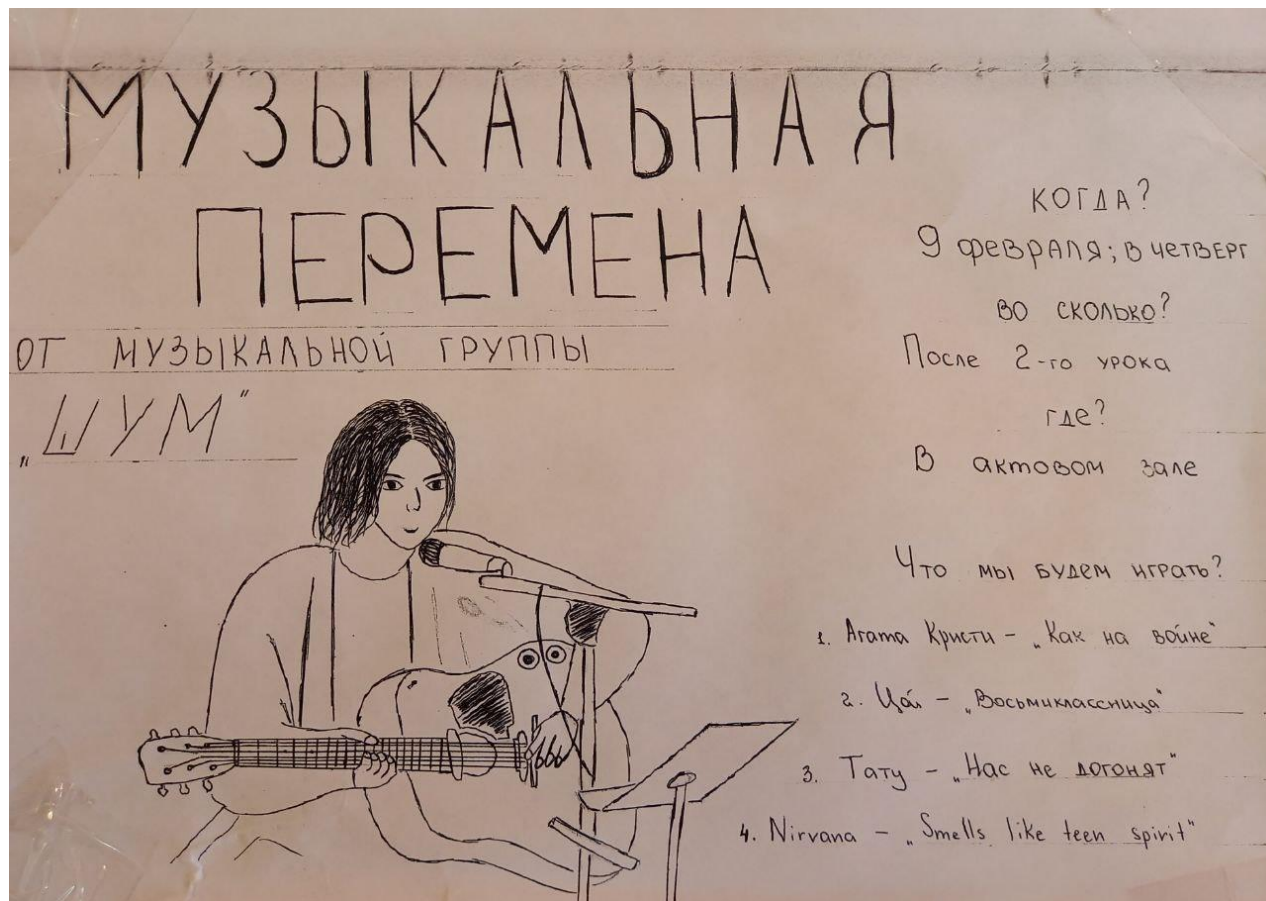 МУЗЫКАЛЬНАЯ
ПЕРЕМЕНА
ОТ МУЗЫКАЛЬНОЙ ГРУППЫ
„ШУМ"
КОГДА?
9 февраля; в четверг
во сколько?
После 2-го урока
где?
В актовом зале
Что мы будем играть?
1. Агата Кристи – „Как на войне"
2. Цой – „Восьмиклассница"
3. Тату – „Нас не догонят"
4. Nirvana – „Smells like teen spirit"